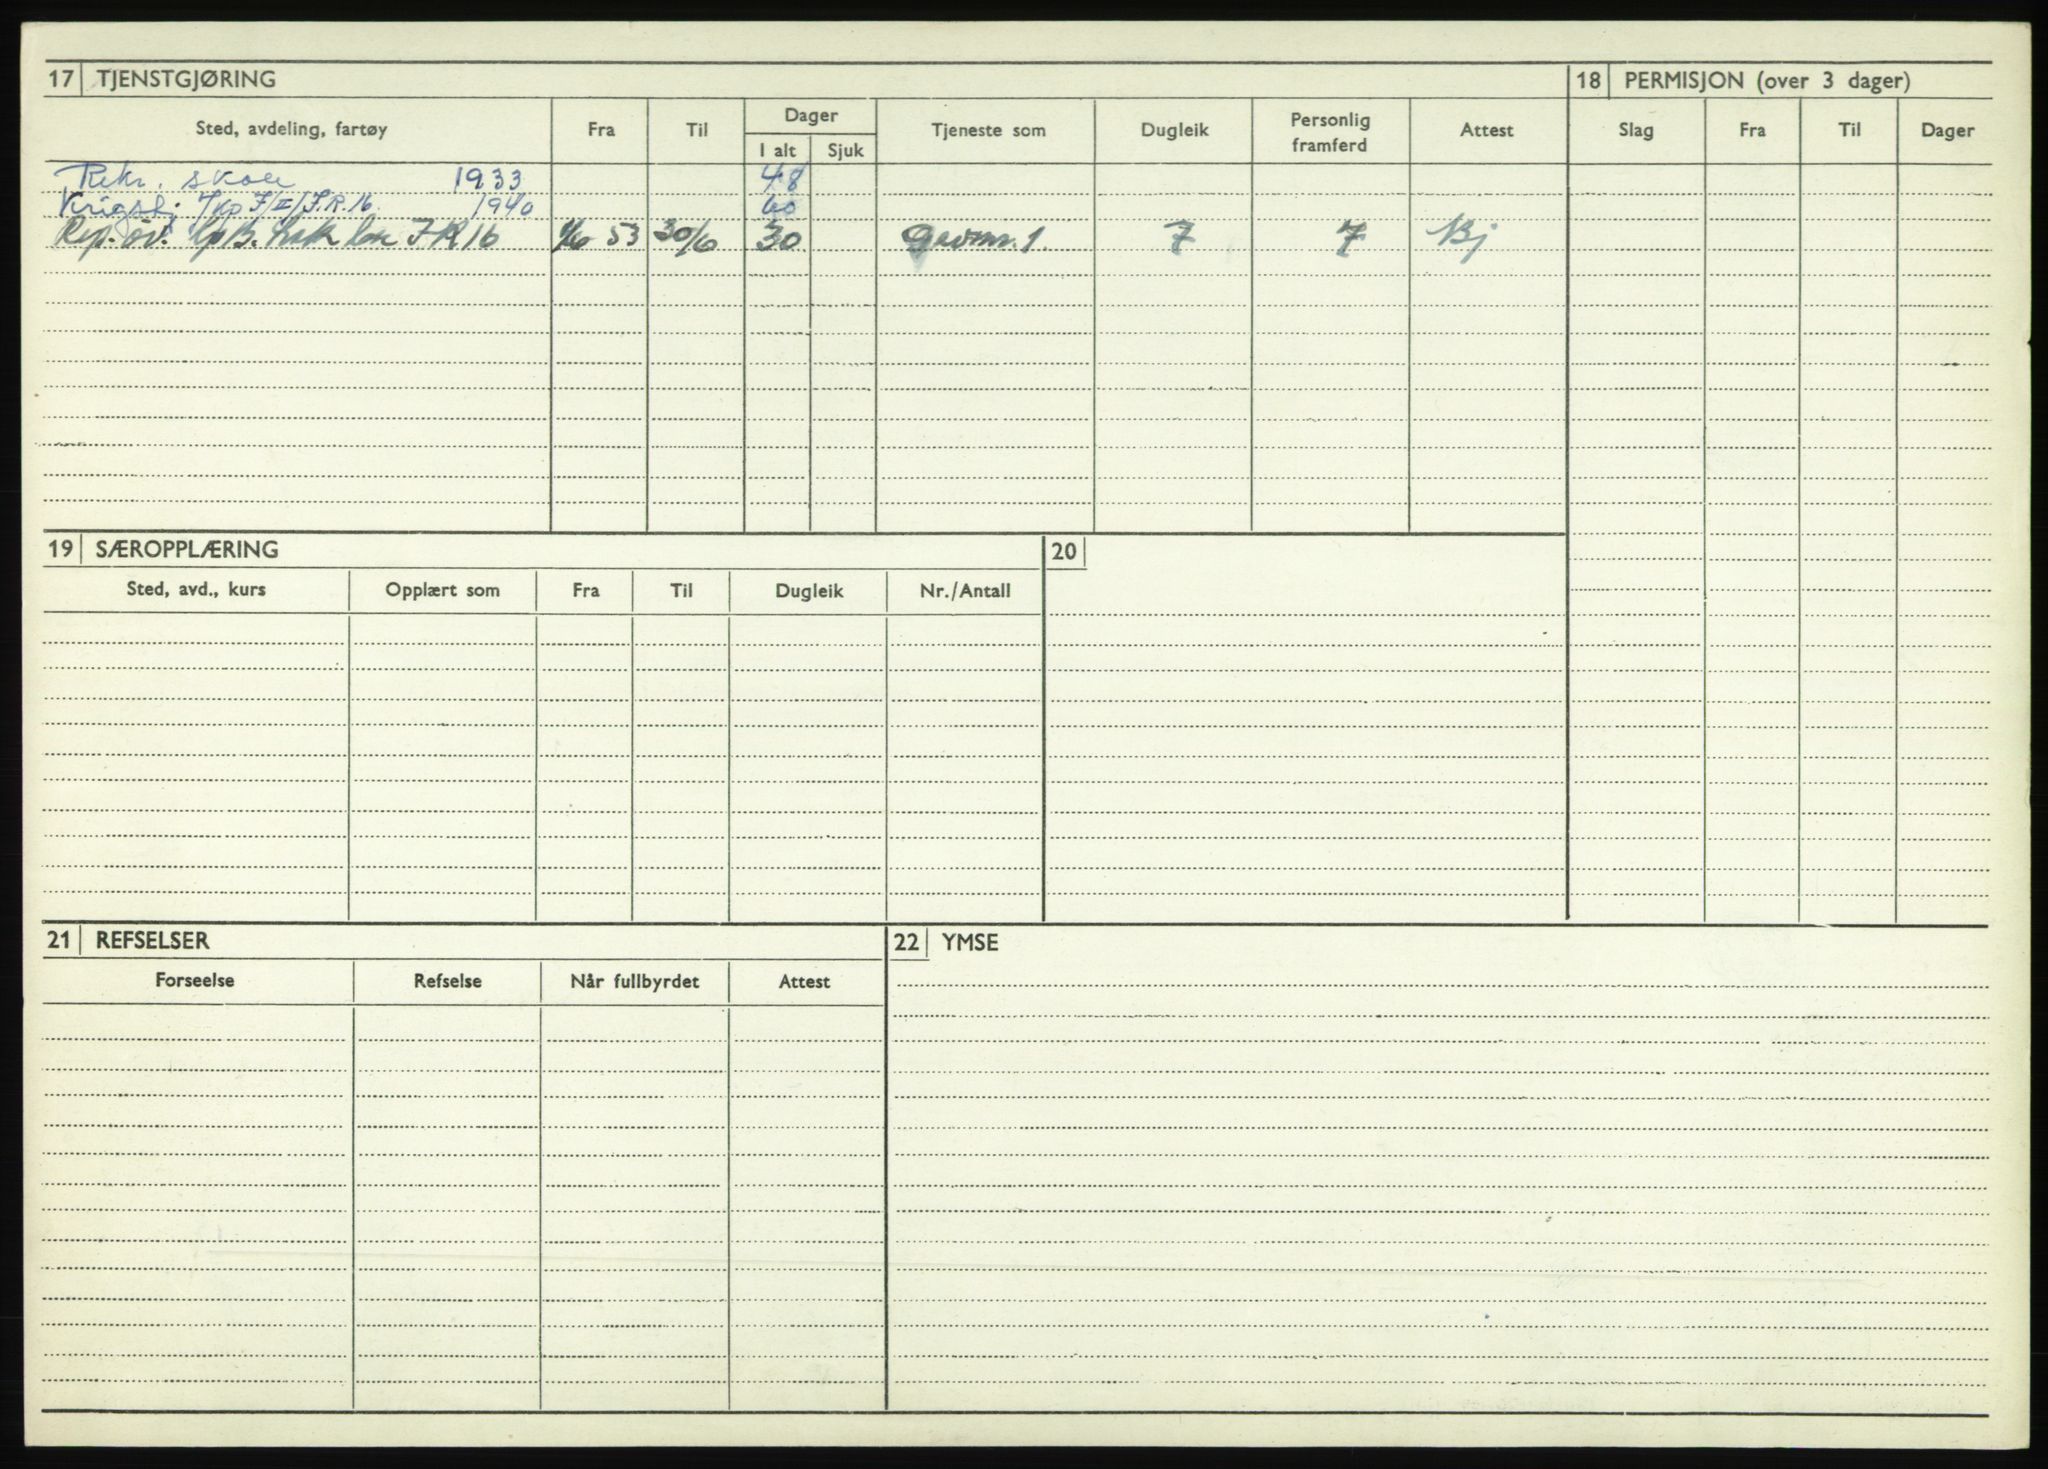 17 TJENSTGJØRING
18 PERMISJON (over 3 dager)
Sted, avdeling, fartøy Fra Til Dager I alt Sjuk Tjeneste som Dugleik Personlig framferd Attest
Slag Fra Til Dager
Rekr. skole 1933 48
Krigstj 7/kp I/II/I.R.16 1940 60
Rep. øv. I R 16 1/6 53 30/6 30 nr. 1 7 7 Bj
19 SÆROPPLÆRING
20
Sted, avd., kurs Opplært som Fra Til Dugleik Nr./Antall
21 REFSELSER
22 YMSE
Forseelse Refselse Når fullbyrdet Attest